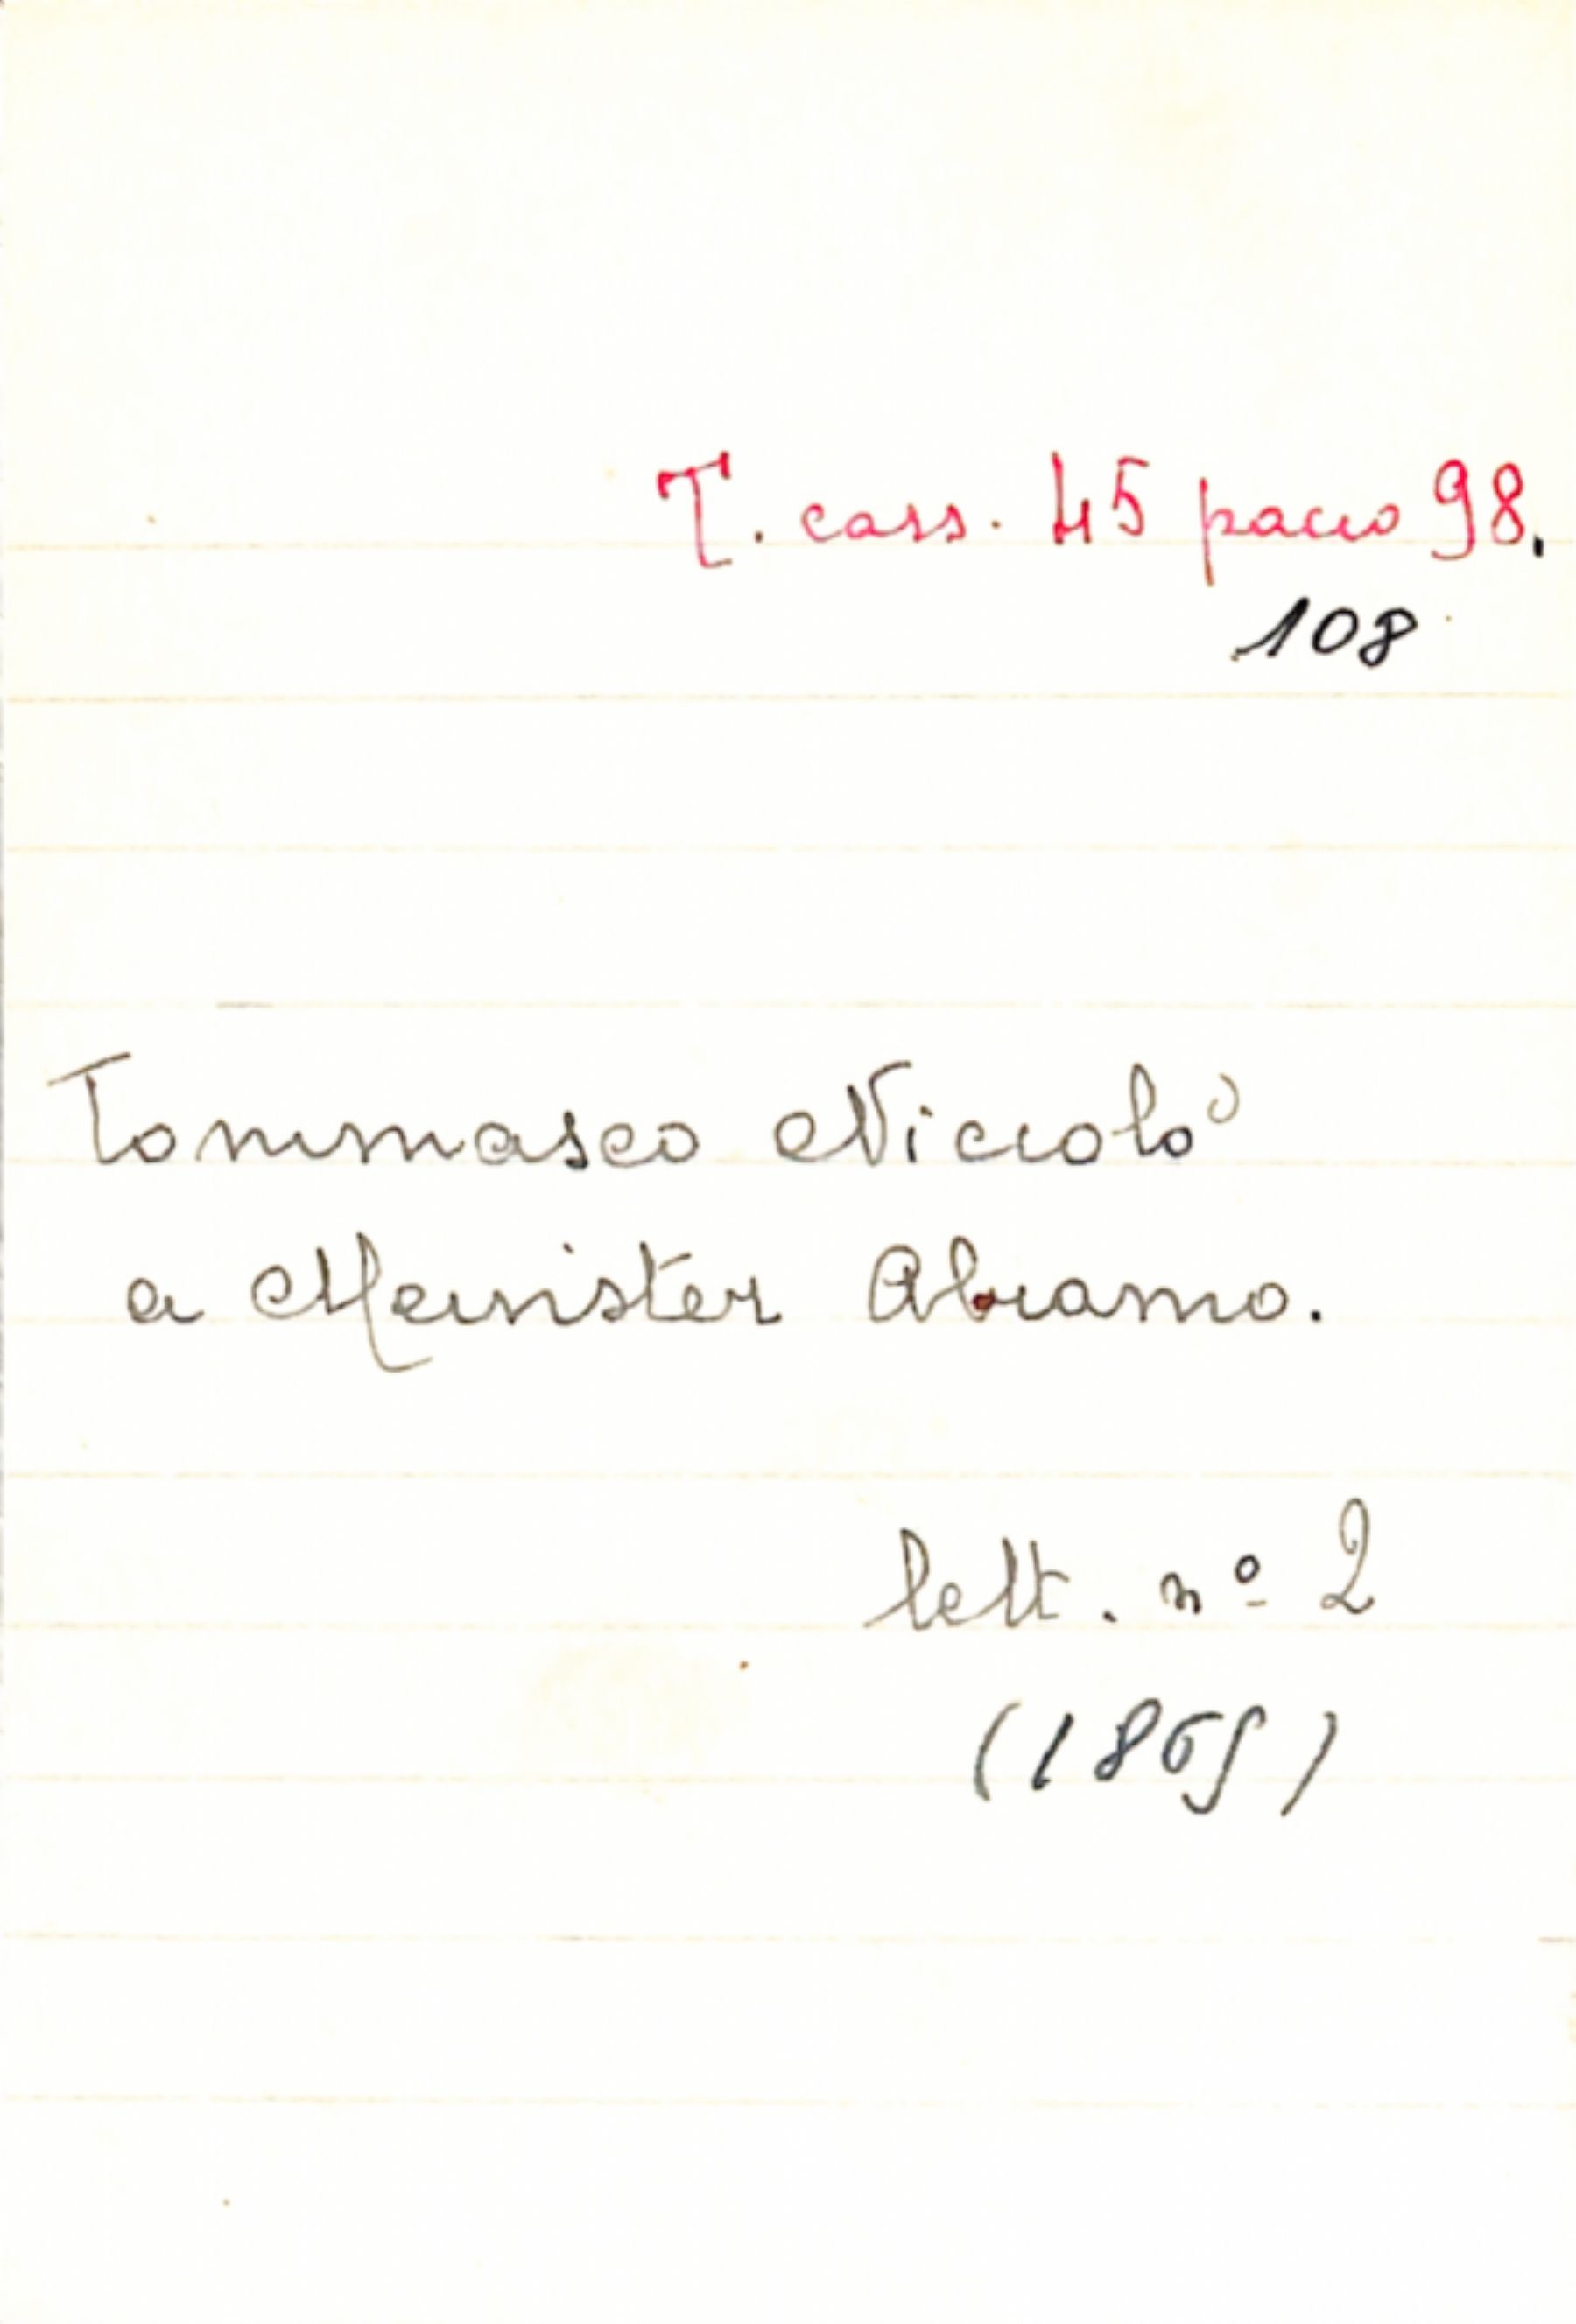 T. cass. 45 pacco 98.
108
Tommaseo Niccolò
a Meinster Abramo.
lett. nº 2
(1865)